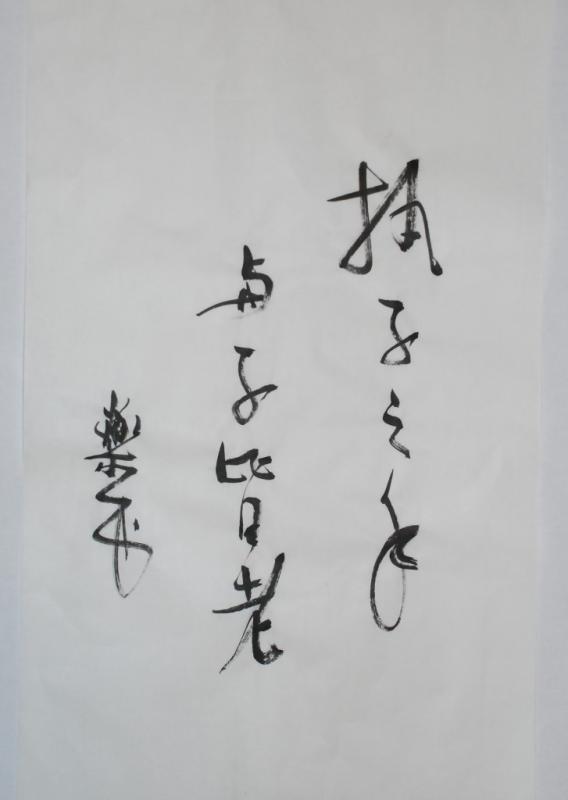 执子之手
与子皆老